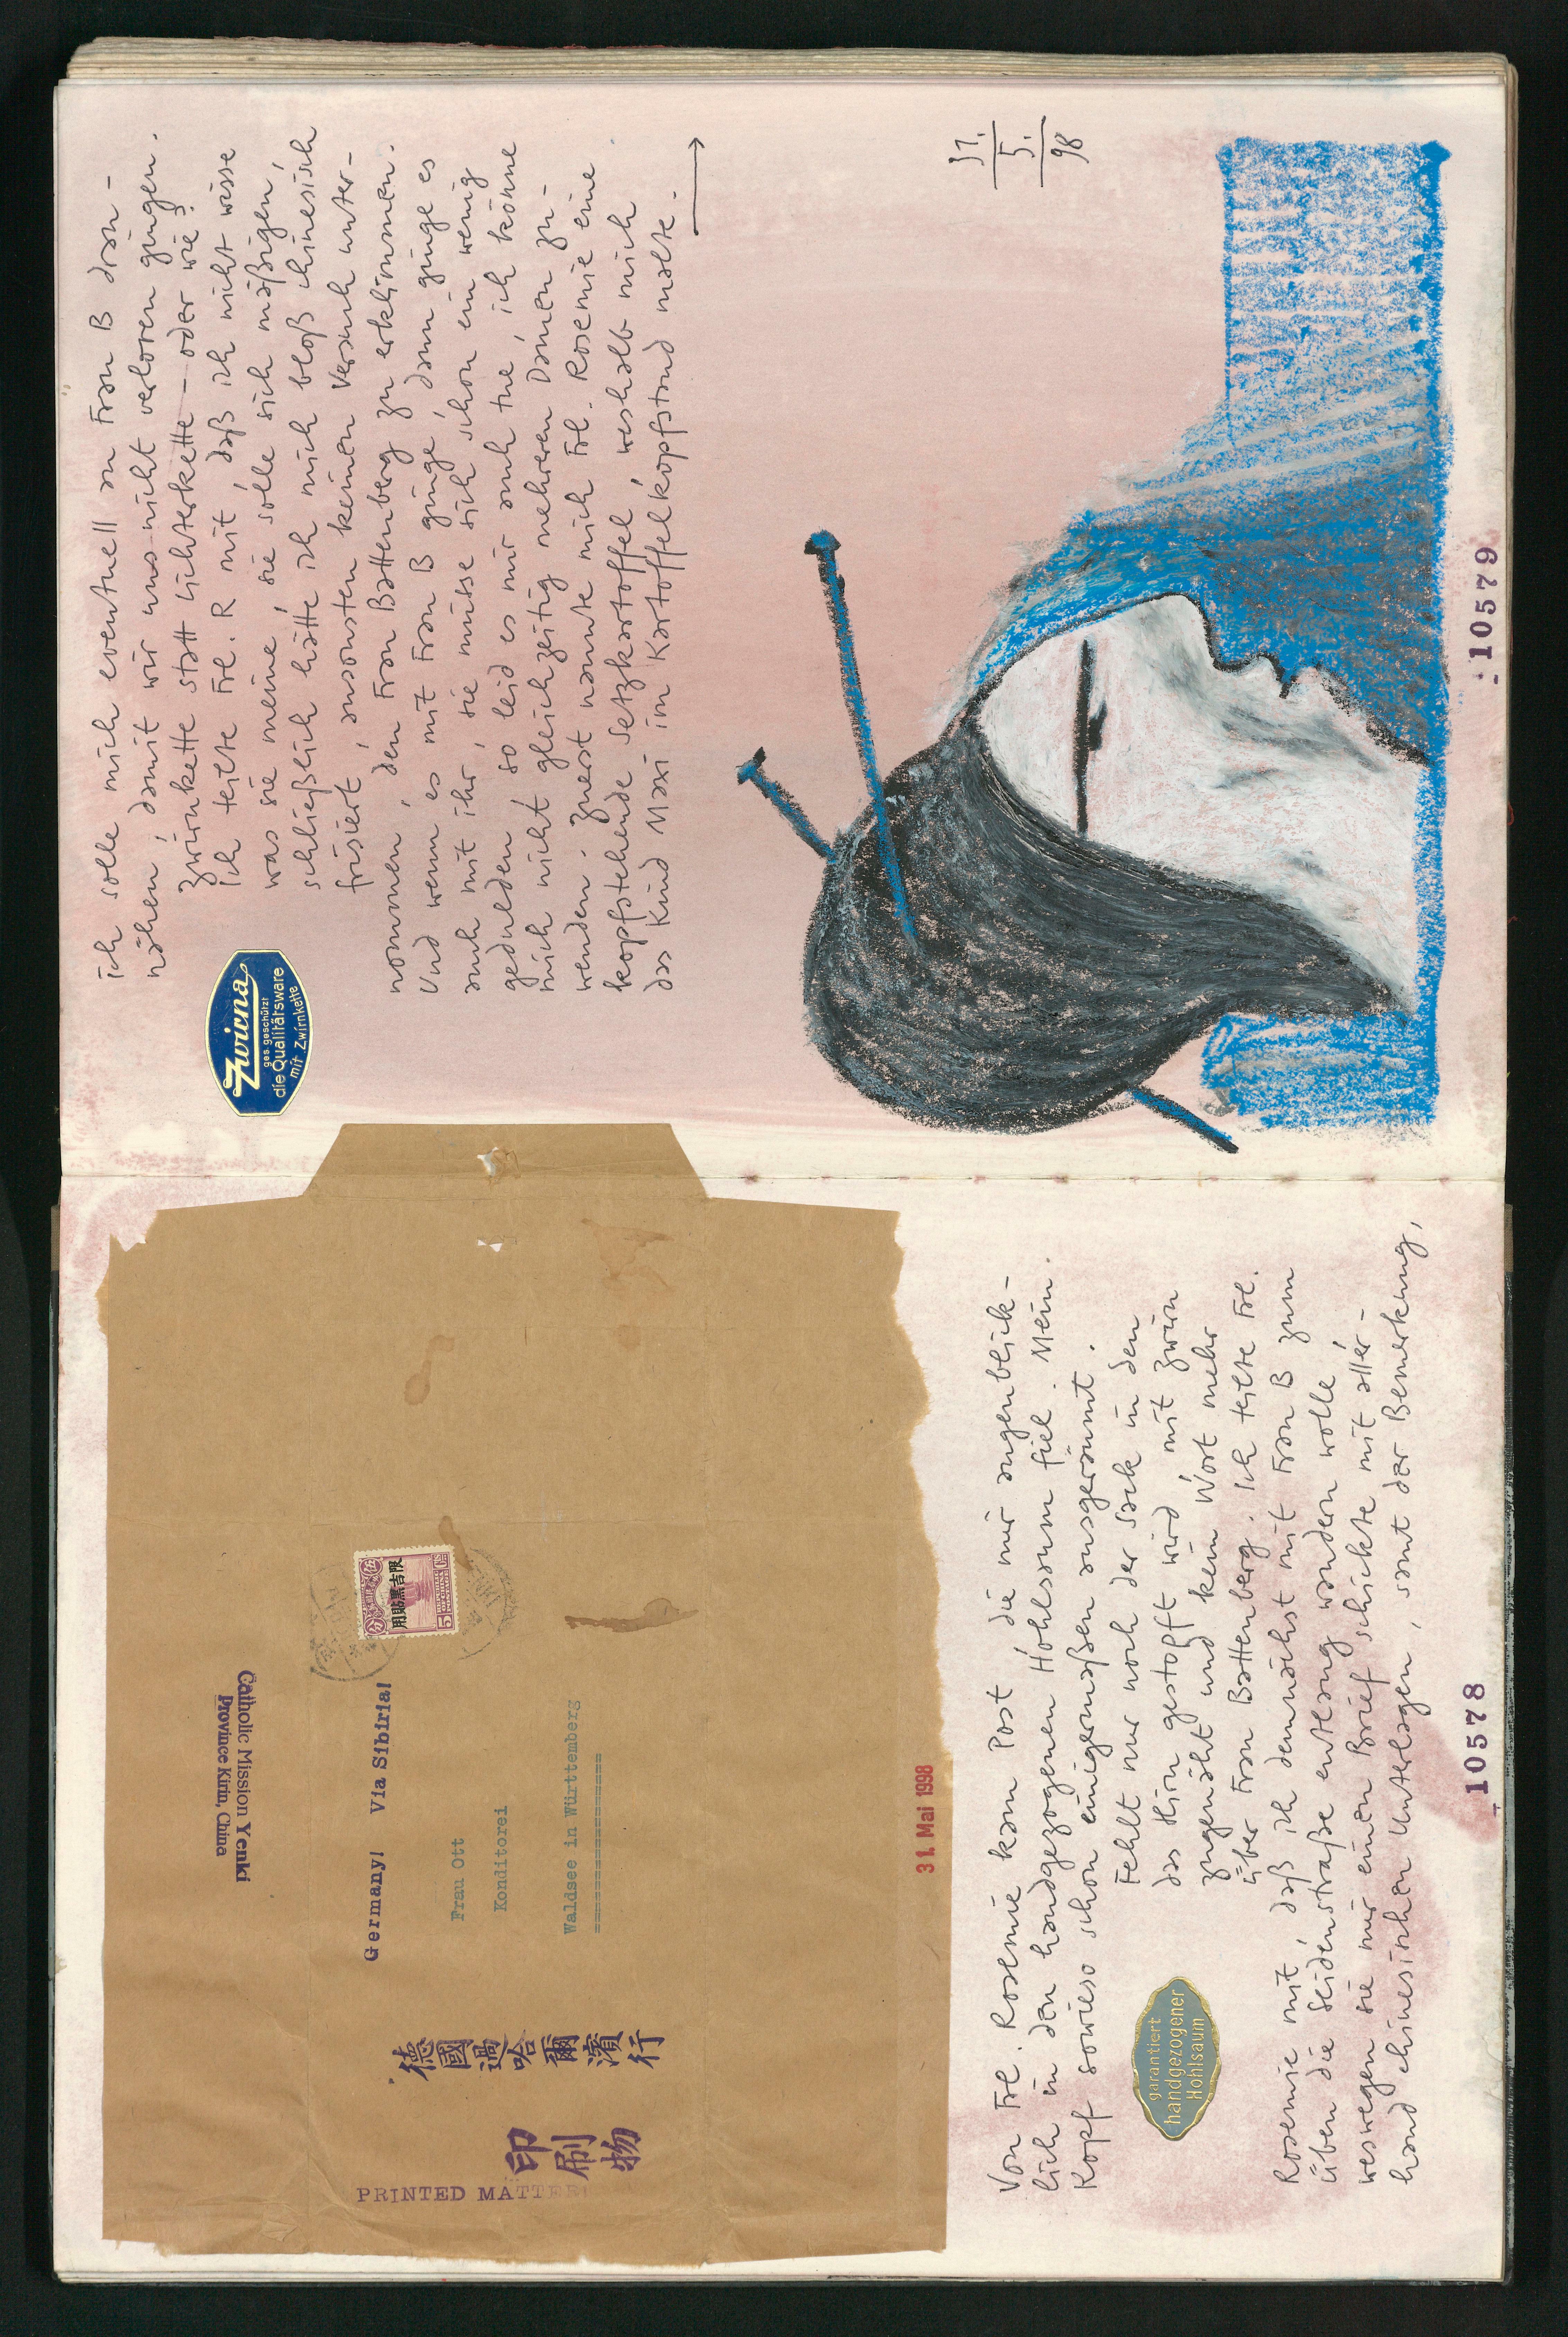 Catholic Mission Yenki
Province Kirin, China
Germany! Via Sibiria!
Frau Ott
Konditorei
Waldsee in Württemberg
======================
限吉黑貼用
5
德國過哈爾濱行
印刷物
PRINTED MATTER
31. Mai 1998
Von Frl. Rosemie kam Post, die mir augenblick-
lich in den handgezogenen Hohlsaum fiel. Mein
Kopf sowieso schon einigermaßen ausgeräumt.
Fehlt nur noch der Sack in den
das Hirn gestopft wird mit Zwirn
zugenäht und kein Wort mehr
über Frau Battenberg. Ich teilte Frl.
garantiert
handgezogener
Hohlsaum
Rosemie mit, daß ich demnächst mit Frau B zum
üben die Seidenstraße entlang wandern wolle,
weswegen sie mir einen Brief schickte mit aller-
hand chinesischen Unterlagen, samt der Bemerkung,
10578
ich solle mich eventuell an Frau B dran-
nähen, damit wir uns nicht verloren gingen.
Zwirnkette statt Lichterkette – oder wie?
Ich teilte Frl. R mit, daß ich nicht wisse
was sie meine, sie solle sich mäßigen,
schließlich hätte ich mich bloß chinesisch
frisiert, ansonsten keinen Versuch unter-
Zwirna
ges. geschützt
die Qualitätsware
mit Zwirnkette
nommen, den Frau Battenberg zu erklimmen.
Und wenn es mit Frau B ginge, dann ginge es
auch mit ihr, sie müsse sich schon ein wenig
gedulden, so leid es mir auch tue, ich könne
mich nicht gleichzeitig mehreren Damen zu-
wenden. Zuerst nannte mich Frl. Rosemie eine
kopfstehende Setzkartoffel, weshalb mich
das Kind Maxi im Kartoffelkopfstand malte.
→
31.
5.
98
10579